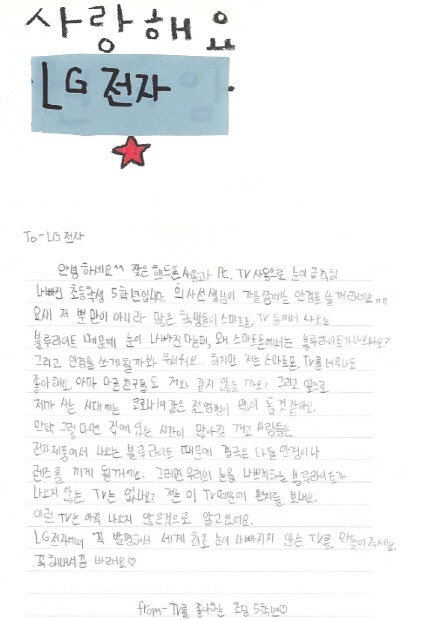 사랑해요
LG 전자
To-LG 전자
안녕하세요^^ 잦은 핸드폰 사용과 PC, TV 사용으로 눈이 급격히
나빠진 초등학생 5학년입니다. 의사선생님이 가을쯤에는 안경을 쓸꺼라네요ㅠㅠ
요새 저 뿐만이 아니라 많은 학생들이 스마트폰, TV 등에서 나오는
블루라이트 때문에 눈이 나빠진다는데, 왜 스마트폰에서는 블루라이트가 나오나요?
그리고 안경을 쓰게 될까봐 무서워요.. 하지만 저는 스마트폰, TV를 너무나도
좋아해요. 아마 다른 친구들도 저와 같지 않을까요? 그리고 앞으로
제가 사는 시대에는 코로나19같은 전염병이 많이 돌것 같아요.
만약 그렇다면 집에 있는 시간이 많아질 거고 사람들은
전자제품에서 나오는 블루라이트 때문에 결국은 다들 안경이나
렌즈를 끼게 될거에요. 그러면 우리의 눈을 나쁘게하는 블루라이트가
나오지 않는 TV는 없나요? 전 이 TV때문에 편지를 보내요.
이런 TV는 아직 나오지 않은것으로 알고있어요.
LG전자에서 꼭 발명해서 세계 최초 눈이 나빠지지 않는 TV를 만들어주세요.
꼭 해내셨음 바래요♡
from-TV를 좋아하는 초딩 5학년♡